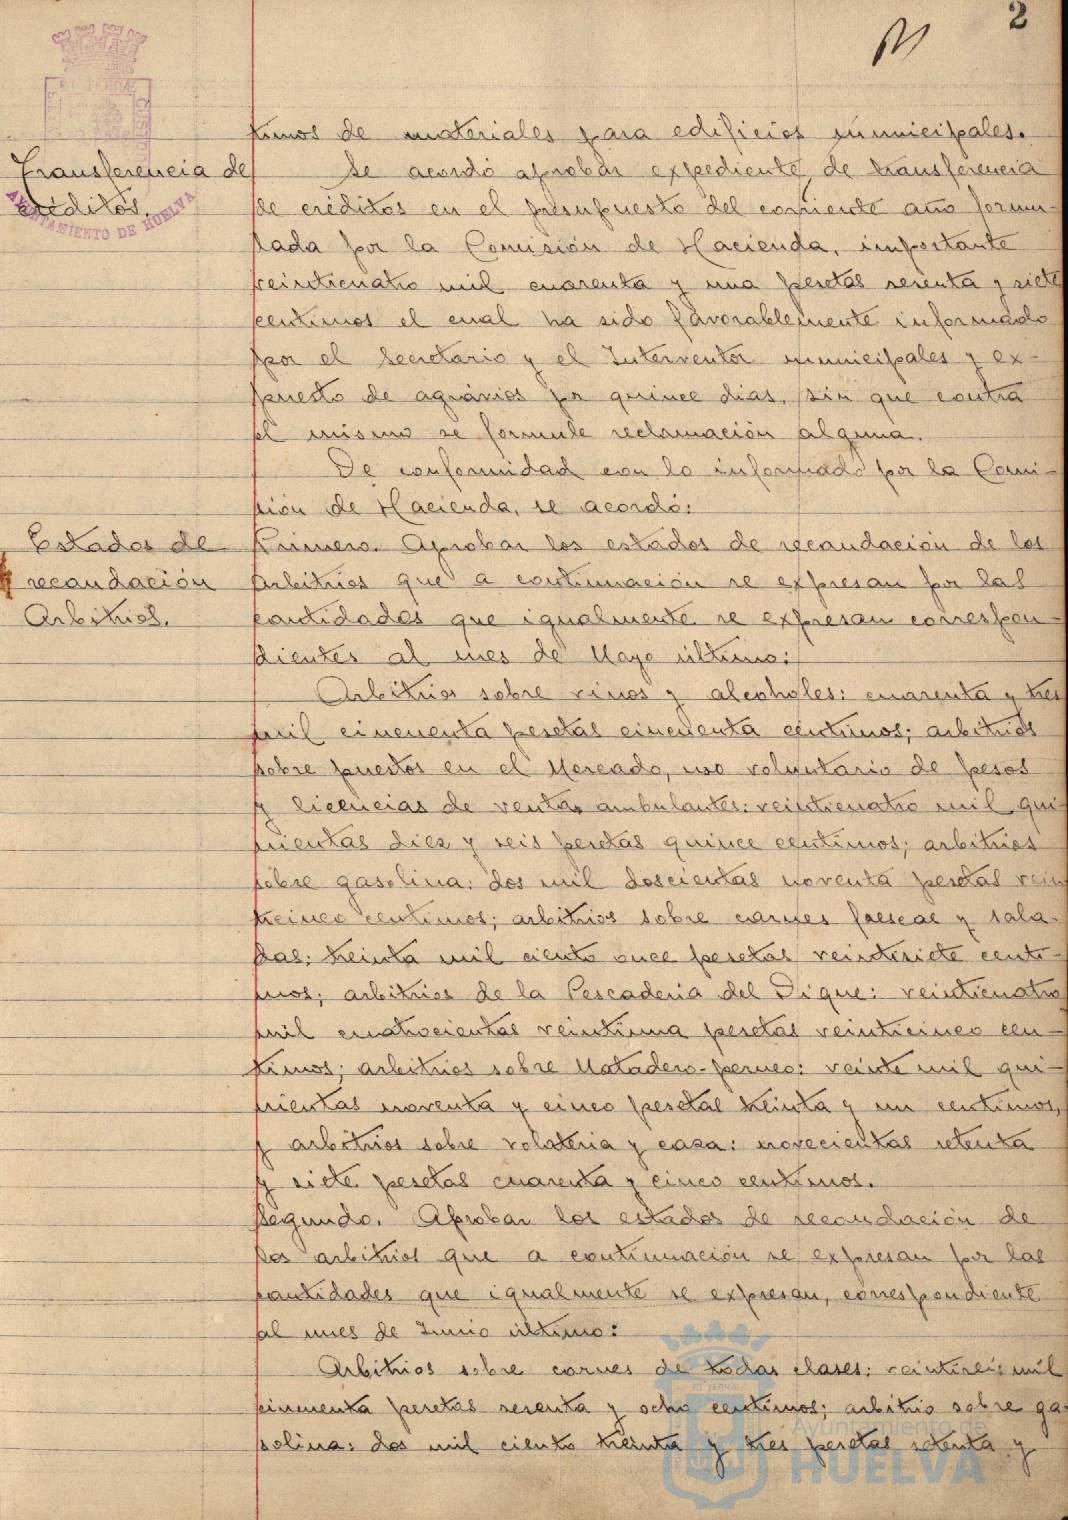 2
timos de materiales para edificios municipales.
Transferencia de
créditos.
AYUNTAMIENTO DE HUELVA
Se acordó aprobar expediente de transferencia
de créditos en el presupuesto del corriente año formu-
lada por la Comisión de Hacienda, importante
veinticuatro mil cuarenta y una pesetas sesenta y siete
centimos el cual ha sido favorablemente informado
por el Secretario y el Interventor municipales y ex-
puesto de agravios por quince dias, sin que contra
el mismo se formule reclamación alguna.
De conformidad con lo informado por la Comi-
sión de Hacienda, se acordó:
Estados de
recaudación
Arbitrios.
Primero. Aprobar los estados de recaudación de los
arbitrios que a continuación se expresan por las
cantidades que igualmente se expresan correspon-
dientes al mes de Mayo último:
Arbitrios sobre vinos y alcoholes: cuarenta y tres
mil cincuenta pesetas cincuenta centimos; arbitrios
sobre puestos en el Mercado, uso voluntario de pesos
y licencias de ventas ambulantes: veinticuatro mil qui-
nientas diez y seis pesetas quince centimos; arbitrios
sobre gasolina: dos mil doscientas noventa pesetas vein
ticinco centimos; arbitrios sobre carnes frescas y sala-
das: treinta mil ciento once pesetas veintisiete centi-
mos; arbitrios de la Pescaderia del Dique: veinticuatro
mil cuatrocientas veintiuna pesetas veinticinco cen-
timos; arbitrios sobre Matadero-perneo: veinte mil qui-
nientas noventa y cinco pesetas treinta y un centimos,
y arbitrios sobre volateria y caza: novecientas setenta
y siete pesetas cuarenta y cinco centimos.
Segundo. Aprobar los estados de recaudación de
los arbitrios que a continuación se expresan por las
cantidades que igualmente se expresan, correspondiente
al mes de Junio último:
Arbitrios sobre carnes de todas clases: veintiseis mil
cincuenta pesetas sesenta y ocho centimos; arbitrio sobre ga-
solina: dos mil ciento treinta y tres pesetas setenta y
Ayuntamiento de
HUELVA